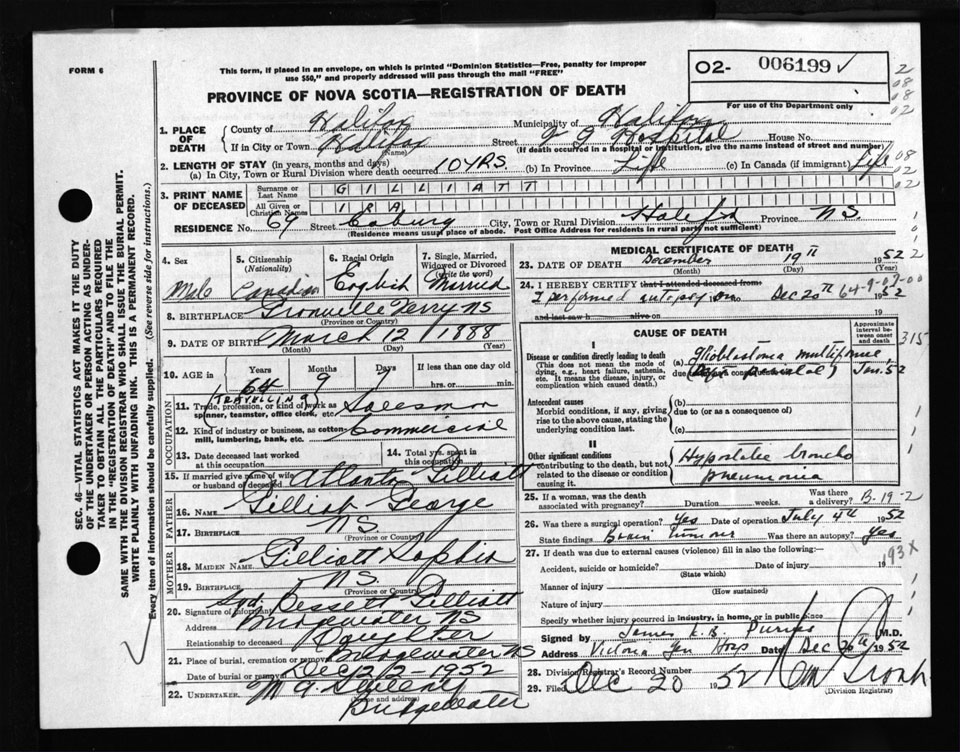 FORM 6
This form, if placed in an envelope, on which is printed "Dominion Statistics—Free, penalty for improper
use $50," and properly addressed will pass through the mail "FREE"
02- 006199 ✓
For use of the Dominion Bureau only
PROVINCE OF NOVA SCOTIA—REGISTRATION OF DEATH
1. PLACE OF DEATH
County of Halifax Municipality of Halifax
If in City or Town Halifax Street V G Hospital House No.
(Name) (If death occurred in a hospital or institution, give the name instead of street and number)
2. LENGTH OF STAY (in years, months and days)
(a) In City, Town or Rural Division where death occurred 10 YRS. (b) In Province Life (c) In Canada (if immigrant) Life
3. PRINT NAME OF DECEASED
Surname or Last Name GILLIATT
All Given or Christian Names IRA
RESIDENCE No. 64 Street Coburg City, Town or Rural Division Halifax Province N.S.
(Residence means usual place of abode. Post Office Address for residents in rural parts not sufficient)
4. Sex Male
5. Citizenship (Nationality) Canadian
6. Racial Origin English
7. Single, Married, Widowed or Divorced (write the word) Married
8. BIRTHPLACE Granville Ferry NS
(Province or Country)
9. DATE OF BIRTH March 12 1888
(Month) (Day) (Year)
10. AGE in Years Months Days If less than one day old
64 9 7 hrs. or min.
OCCUPATION
(TRAVELLING)
11. Trade, profession, or kind of work as Salesman
spinner, teamster, office clerk, etc.
12. Kind of industry or business, as cotton- Commercial
mill, lumbering, bank, etc.
13. Date deceased last worked at this occupation
14. Total yrs. spent in this occupation
15. If married give name of wife or husband of deceased Atlanta Gilliatt
FATHER
16. Name Gilliatt George
17. Birthplace NS
(Province or Country)
MOTHER
18. MAIDEN NAME Gilliatt Sophia
19. BIRTHPLACE NS
(Province or Country)
20. Signature of informant Sgd. Bessett Gilliatt
Address Bridgewater NS
Relationship to deceased Daughter
21. Place of burial, cremation or removal Bridgewater NS
Date of burial or removal Dec 22 1952
22. UNDERTAKER
(Name and address)
Bridgewater
MEDICAL CERTIFICATE OF DEATH
23. DATE OF DEATH December 19th 1952
(Month) (Day) (Year)
24. I HEREBY CERTIFY that I attended deceased from
I performed autopsy on Dec 20th 1952
and last saw h alive on 19
64-9-07-00
CAUSE OF DEATH
Approximate interval between onset and death
I
Disease or condition directly leading to death (a) Glioblastoma multiforme
(This does not mean the mode of dying, e.g., heart failure, asthenia, etc. It means the disease, injury, or complication which caused death.)
due to (or as a consequence of) Jan. 52
Antecedent causes (b)
Morbid conditions, if any, giving rise to the above cause, stating the underlying condition last.
due to (or as a consequence of)
(c)
II
Other significant conditions
contributing to the death, but not related to the disease or condition causing it.
Hypostatic broncho
pneumonia
25. If a woman, was the death associated with pregnancy? Duration weeks. Was there a delivery? B-19-2
26. Was there a surgical operation? Yes Date of operation July 4th 1952
State findings Brain tumour Was there an autopsy? Yes
27. If death was due to external causes (violence) fill in also the following:—
Accident, suicide or homicide? Date of injury 19
(State which)
193X
Manner of injury
(How sustained)
Nature of injury
Specify whether injury occurred in industry, in home, or in public place
Signed by James K.B. Purves M.D.
Address Victoria Gen Hosp Date Dec 20th 1952
28. Division Registrar's Record Number
29. Filed Dec 20 1952
(Division Registrar)
SEC. 46—VITAL STATISTICS ACT MAKES IT THE DUTY
OF THE UNDERTAKER OR PERSON ACTING AS UNDER-
TAKER TO OBTAIN ALL THE PARTICULARS REQUIRED
IN THE "REGISTRATION OF DEATH" AND TO FILE THE
SAME WITH THE DIVISION REGISTRAR WHO SHALL ISSUE THE BURIAL PERMIT.
WRITE PLAINLY WITH UNFADING INK. THIS IS A PERMANENT RECORD.
Every item of information should be carefully supplied. (See reverse side for instructions.)
2
08
08
02
08
02
315